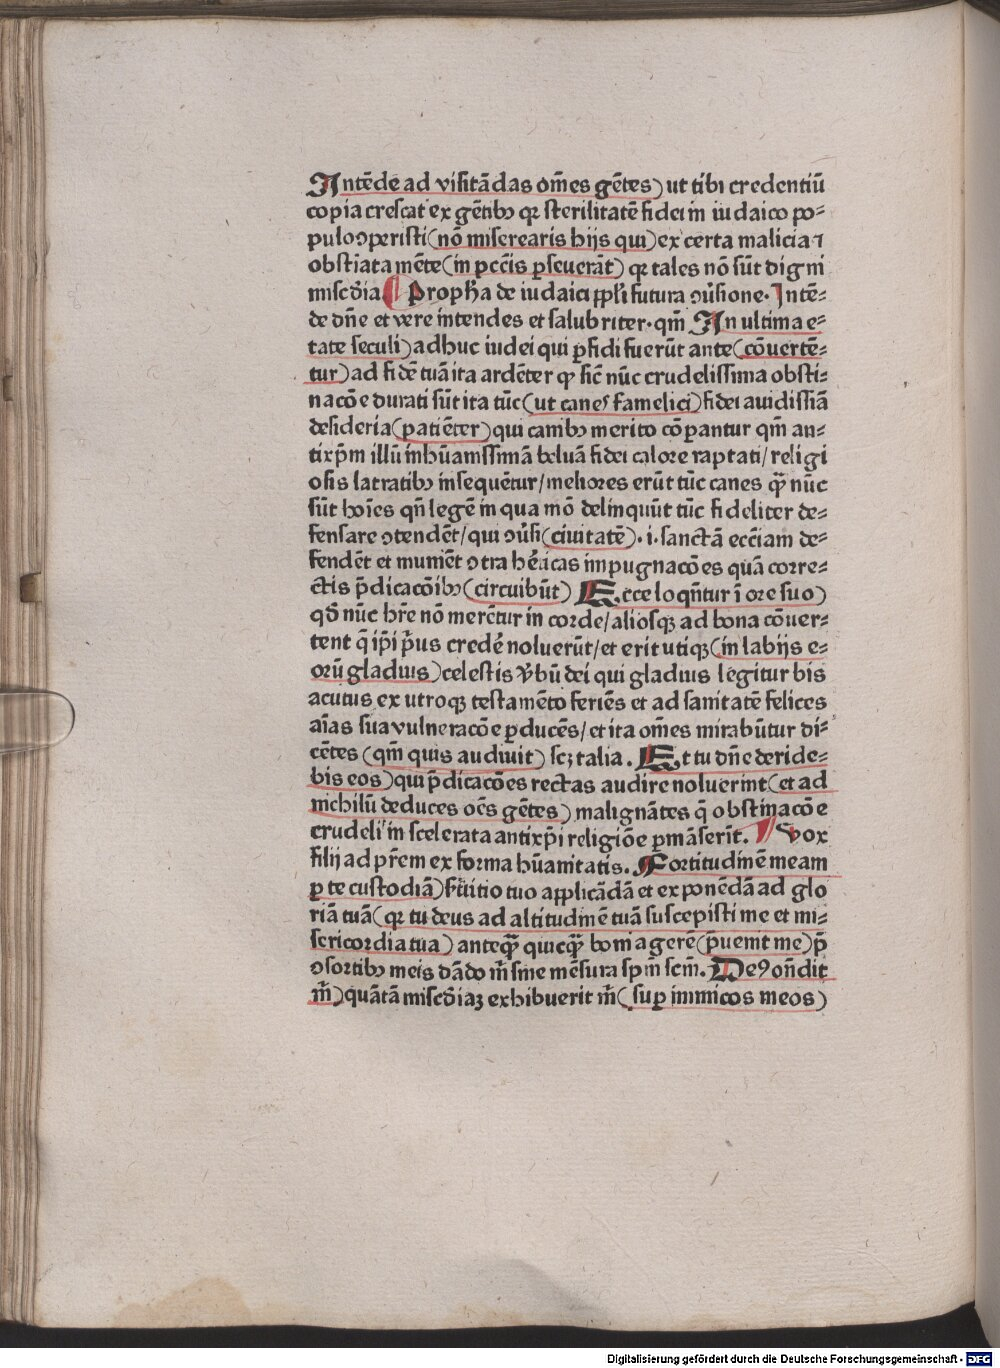 Intēde ad visitādas om̄es gētes) ut tibi credentiū
copia crescat ex gētibꝯ qꝛ sterilitatē fidei in iudaico po⸗
pulo ꝯperisti (nō miserearis hijs qui) ex certa malicia ⁊
obstiata mēte (in pccīs ꝑseuerāt) qꝛ tales nō sūt digni
miscd̄ia ¶ Propħa de iudaici ppl̄i futura ꝯūsione. Intē⸗
de dn̄e et vere intendes et salubriter. qm̄ In ultima e⸗
tate seculi) adhuc iudei qui ꝑfidi fuerūt ante (cōuertē⸗
tur) ad fidē tuā ita ardēter qꝫ sic̄ nūc crudelissima obsti⸗
nacōe durati sūt ita tūc (ut canes famelici) fidei auidissiā
desideria (patiēter) qui canibꝯ merito cōparantur qm̄ an⸗
tixp̄m illū inhūanissimā beluā fidei calore raptati/ religi
osis latratibꝯ insequētur/ meliores erūt tūc canes qꝫ̄ nūc
sūt hoīes qn̄ legē in qua mō delinquūt tūc fideliter de⸗
fensare ꝯtendēt/ qui ꝯūsi (ciuitatē). i. sanctā eccīam de⸗
fendēt et muniēt ꝯtra hēticas impugnacōes quā corre⸗
ctis p̄dicacōibꝯ (circuibūt) Ecce loqn̄tur ī ore suo)
qd̄ nūc hr̄e nō merētur in corde/ aliosqꝫ ad bona cōuer⸗
tent q̄ ip̄i p̄us credē noluerūt/ et erit utiqꝫ (in labijs e⸗
orū gladius) celestis v̄bū dei qui gladius legitur bis
acutus ex utroqꝫ testamēto feriēs et ad sanitatē felices
aīas sua vulneracōe ꝑducēs/ et ita om̄es mirabūtur di⸗
cētes (qm̄ quis audiuit) scꝫ talia. Et tu dn̄e deride⸗
bis eos) qui p̄dicacōes rectas audire noluerint (et ad
nichilū deduces oēs gētes) malignātes q̄ obstinacōe
crudeli in scelerata antixp̄i religiōe ꝑmāserīt. ¶ Vox
filij ad pr̄em ex forma hūanitatis. Fortitudinē meam
ꝑ te custodiā) fuitio tuo applicādā et exponēdā ad glo
riā tuā (qꝛ tu deus ad altitudinē tuā suscepisti me et mi⸗
sericordia tua) anteqꝫ̄ quicqꝫ̄ boni agerē (p̄uenit me) p̄
ꝯsortibꝯ meis dādo m̄ sine mēsura sp̄m scm̄. Deꝯ on̄dit
m̄) quātā miscd̄iaꝫ exhibuerit m̄ (suꝑ inimicos meos)
Digitalisierung gefördert durch die Deutsche Forschungsgemeinschaft - DFG